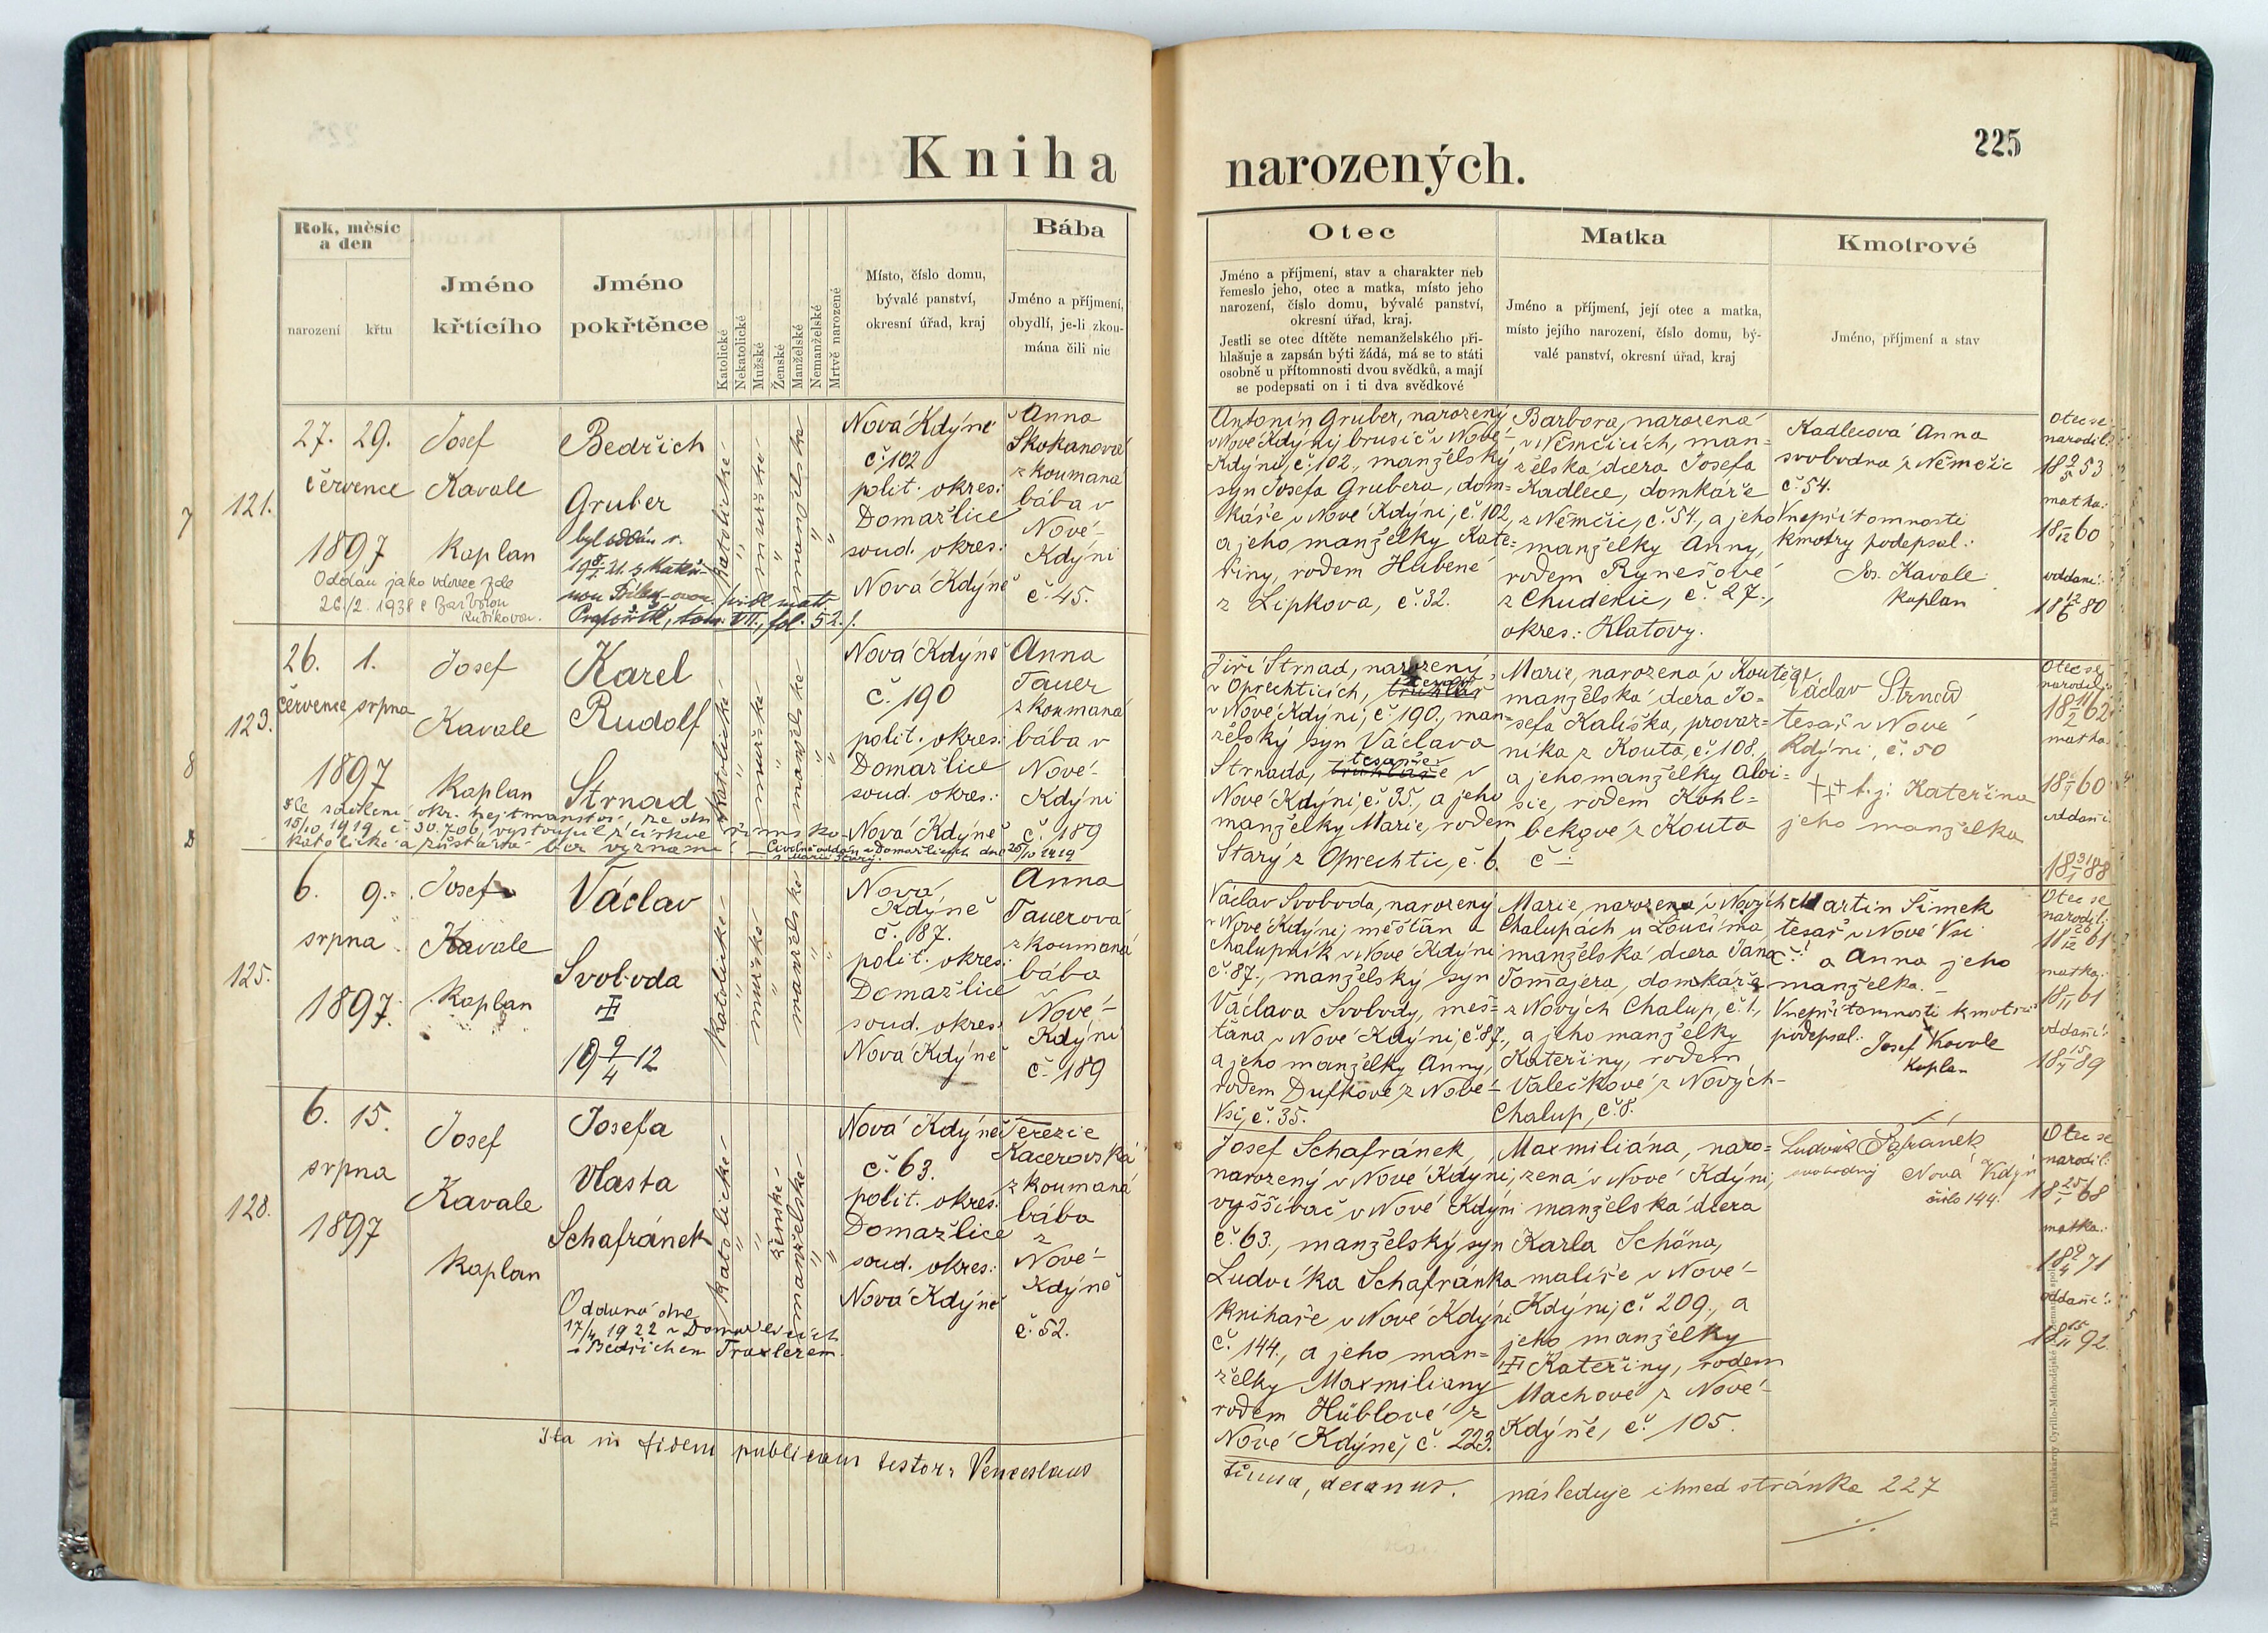 Kniha
Rok, měsíc
a den
narození
křtu
Jméno
křtícího
Jméno
pokřtěnce
Katolické
Nekatolické
Mužské
Ženské
Manželské
Nemanželské
Mrtvě narozené
Místo, číslo domu,
bývalé panství,
okresní úřad, kraj
Bába
Jméno a příjmení,
obydlí, je-li zkou-
mána čili nic
121.
27. 29.
července
1897
Oddán jako vdovec zde
26/2. 1938 s Barborou
Josef
Kavale
kaplan
Bedřich
Gruber
byl oddán r.
katolické
mužské
manželské
Nová Kdýně
č. 102
polit. okres:
Domažlice
soud. okres:
Nová Kdýně
Anna
Skokanová
zkoumaná
bába v
Nové
Kdýni
č. 45.
123.
26. 1.
července srpna
1897
Josef
Kavale
kaplan
Karel
Rudolf
Strnad
katolické
mužské
manželské
Nová Kdýně
č. 190
polit. okres:
Domažlice
soud. okres:
Nová Kdýně
Anna
Tauer
zkoumaná
bába v
Nové
Kdýni
č. 189
15/10 1919, č. 30.706, vystoupil z církve římsko-
katolické a zůstává bez vyznání
125.
6. 9.
srpna
1897.
Josef
Kavale
kaplan
Václav
Svoboda
19 9/4 12
katolické
mužské
manželské
Nová
Kdýně
č. 87.
polit. okres:
Domažlice
soud. okres:
Nová Kdýně
Anna
Tauerová
zkoumaná
bába
Nové
Kdýni
č. 189
128.
6. 15.
srpna
1897
Josef
Kavale
kaplan
Josefa
Vlasta
Schafránek
Oddaná dne
17/4 1922 v Domažlicích
s Bedřichem Traxlerem.
katolické
ženské
manželské
Nová Kdýně
č. 63.
polit. okres:
Domažlice
soud. okres:
Nová Kdýně
Terezie
Kacerovská
zkoumaná
bába
z
Nové
Kdýně
č. 52.
Ita in fidem publicam testor: Venceslaus
225
narozených.
Otec
Jméno a příjmení, stav a charakter neb
řemeslo jeho, otec a matka, místo jeho
narození, číslo domu, bývalé panství,
okresní úřad, kraj.
Jestli se otec dítěte nemanželského při-
hlašuje a zapsán býti žádá, má se to státi
osobně u přítomnosti dvou svědků, a mají
se podepsati on i ti dva svědkové
Matka
Jméno a příjmení, její otec a matka,
místo jejího narození, číslo domu, bý-
valé panství, okresní úřad, kraj
Kmotrové
Jméno, příjmení a stav
Antonín Gruber, narozený
v Nové Kdýni, brusič v Nové
Kdýni, č. 102, manželský
syn Josefa Grubera, dom=
káře v Nové Kdýni, č. 102,
a jeho manželky Kate=
řiny, rodem Hubené
z Lipkova, č. 32.
Barbora, narozená
v Němčicích, man=
želská dcera Josefa
Kadlece, domkáře
z Němčic, č. 54, a jeho
manželky Anny,
rodem Rynešové
z Chudenic, č. 27.,
okres: Klatovy.
Kadlecová Anna
svobodná z Němčic
č. 54.
V nepřítomnosti
kmotry podepsal:
Jos. Kavale
kaplan
Otec se
narodil:
18 9/5 53
matka:
18 1/12 60
oddaní:
18 12/6 80
Jiří Strnad, narozený
v Oprechticích, truhlář
v Nové Kdýni, č. 190., man=
želský syn Václava
Strnada, tesaře v
Nové Kdýni, č. 35., a jeho
manželky Marie, rodem
Starý z Oprechtic, č. 6.
Marie, narozená v Koutě,
manželská dcera Jo=
sefa Kališka, provaz=
níka z Kouta, č. 108.,
a jeho manželky Aloi=
sie, rodem Kohl=
bekové z Kouta
č:
Václav Strnad
tesař v Nové
Kdýni, č. 50
+++ t. j: Kateřina
jeho manželka
Otec se
narodil:
18 11/2 62
matka:
oddaní
18 31/1 88
Václav Svoboda, narozený
v Nové Kdýni, měšťan a
chalupník v Nové Kdýni
č. 87., manželský syn
Václava Svobody, měš=
ťana v Nové Kdýni, č. 87.,
a jeho manželky Anny,
rodem Dufkové z Nové
Vsi, č. 35.
Marie, narozena v Nových
Chalupách u Loučima
manželská dcera Jana
Tomajera, domkáře
z Nových Chalup, č. 1.,
a jeho manželky
Kateřiny, rodem
Valečkové z Nových
Chalup, č. 8.
Martin Šimek
tesař v Nové Vsi
č: a Anna jeho
manželka.
V nepřítomnosti kmotrů
podepsal: Josef Kavale
kaplan
Otec se
narodil:
18 26/12 61
matka:
oddaní:
18 15/7 89
Josef Schafránek,
narozený v Nové Kdýni,
vyššívač v Nové Kdýni
č. 63., manželský syn
Ludvíka Schafránka
knihaře v Nové Kdýni
č. 144., a jeho man=
želky Maxmiliany
rodem Hüblové z
Nové Kdýně, č. 223.
Maxmiliána, naro=
zená v Nové Kdýni,
manželská dcera
Karla Schöna,
malíře v Nové
Kdýni, č. 209., a
jeho manželky
Kateřiny, rodem
Machové z Nové
Kdýně, č. 105.
Ludvík Šafránek
svobodný Nová Kdýň
číslo 144.
Otec se
narodil:
18 25/1 68
matka:
18 9/4 71
oddaní:
18 15/11 92.
děcanus.
následuje ihned stránka 227